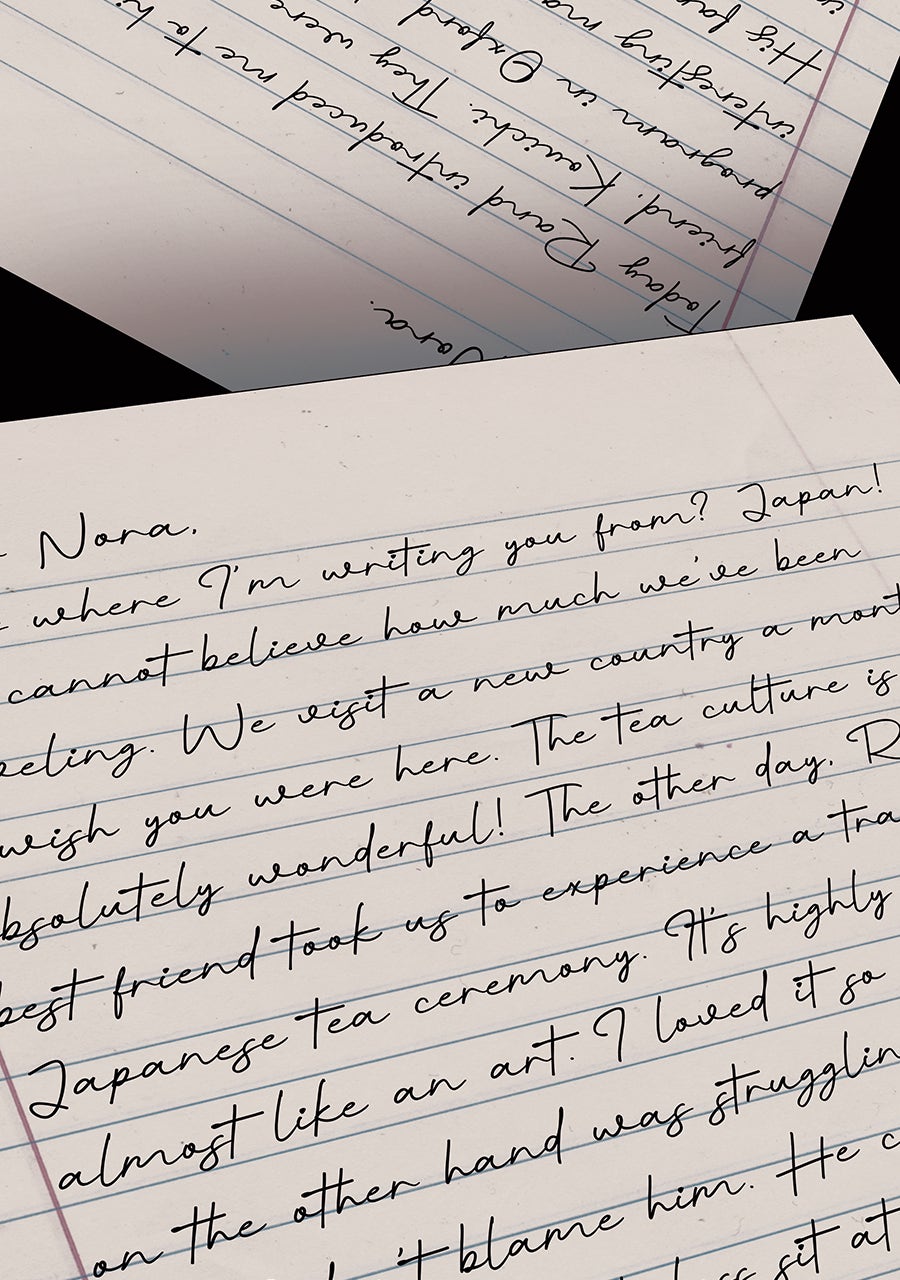 Today Rand introduced me to
friend, Kouichi. They were
program in Oxford
interesting
His
Nora,
where I'm writing you from? Japan!
cannot believe how much we've been
We visit a new country a
wish you were here. The tea culture is
wonderful! The other day,
best friend took us to experience a
Japanese tea ceremony. It's highly
almost like an art. I loved it so
on the other hand was
blame him. He
sit at